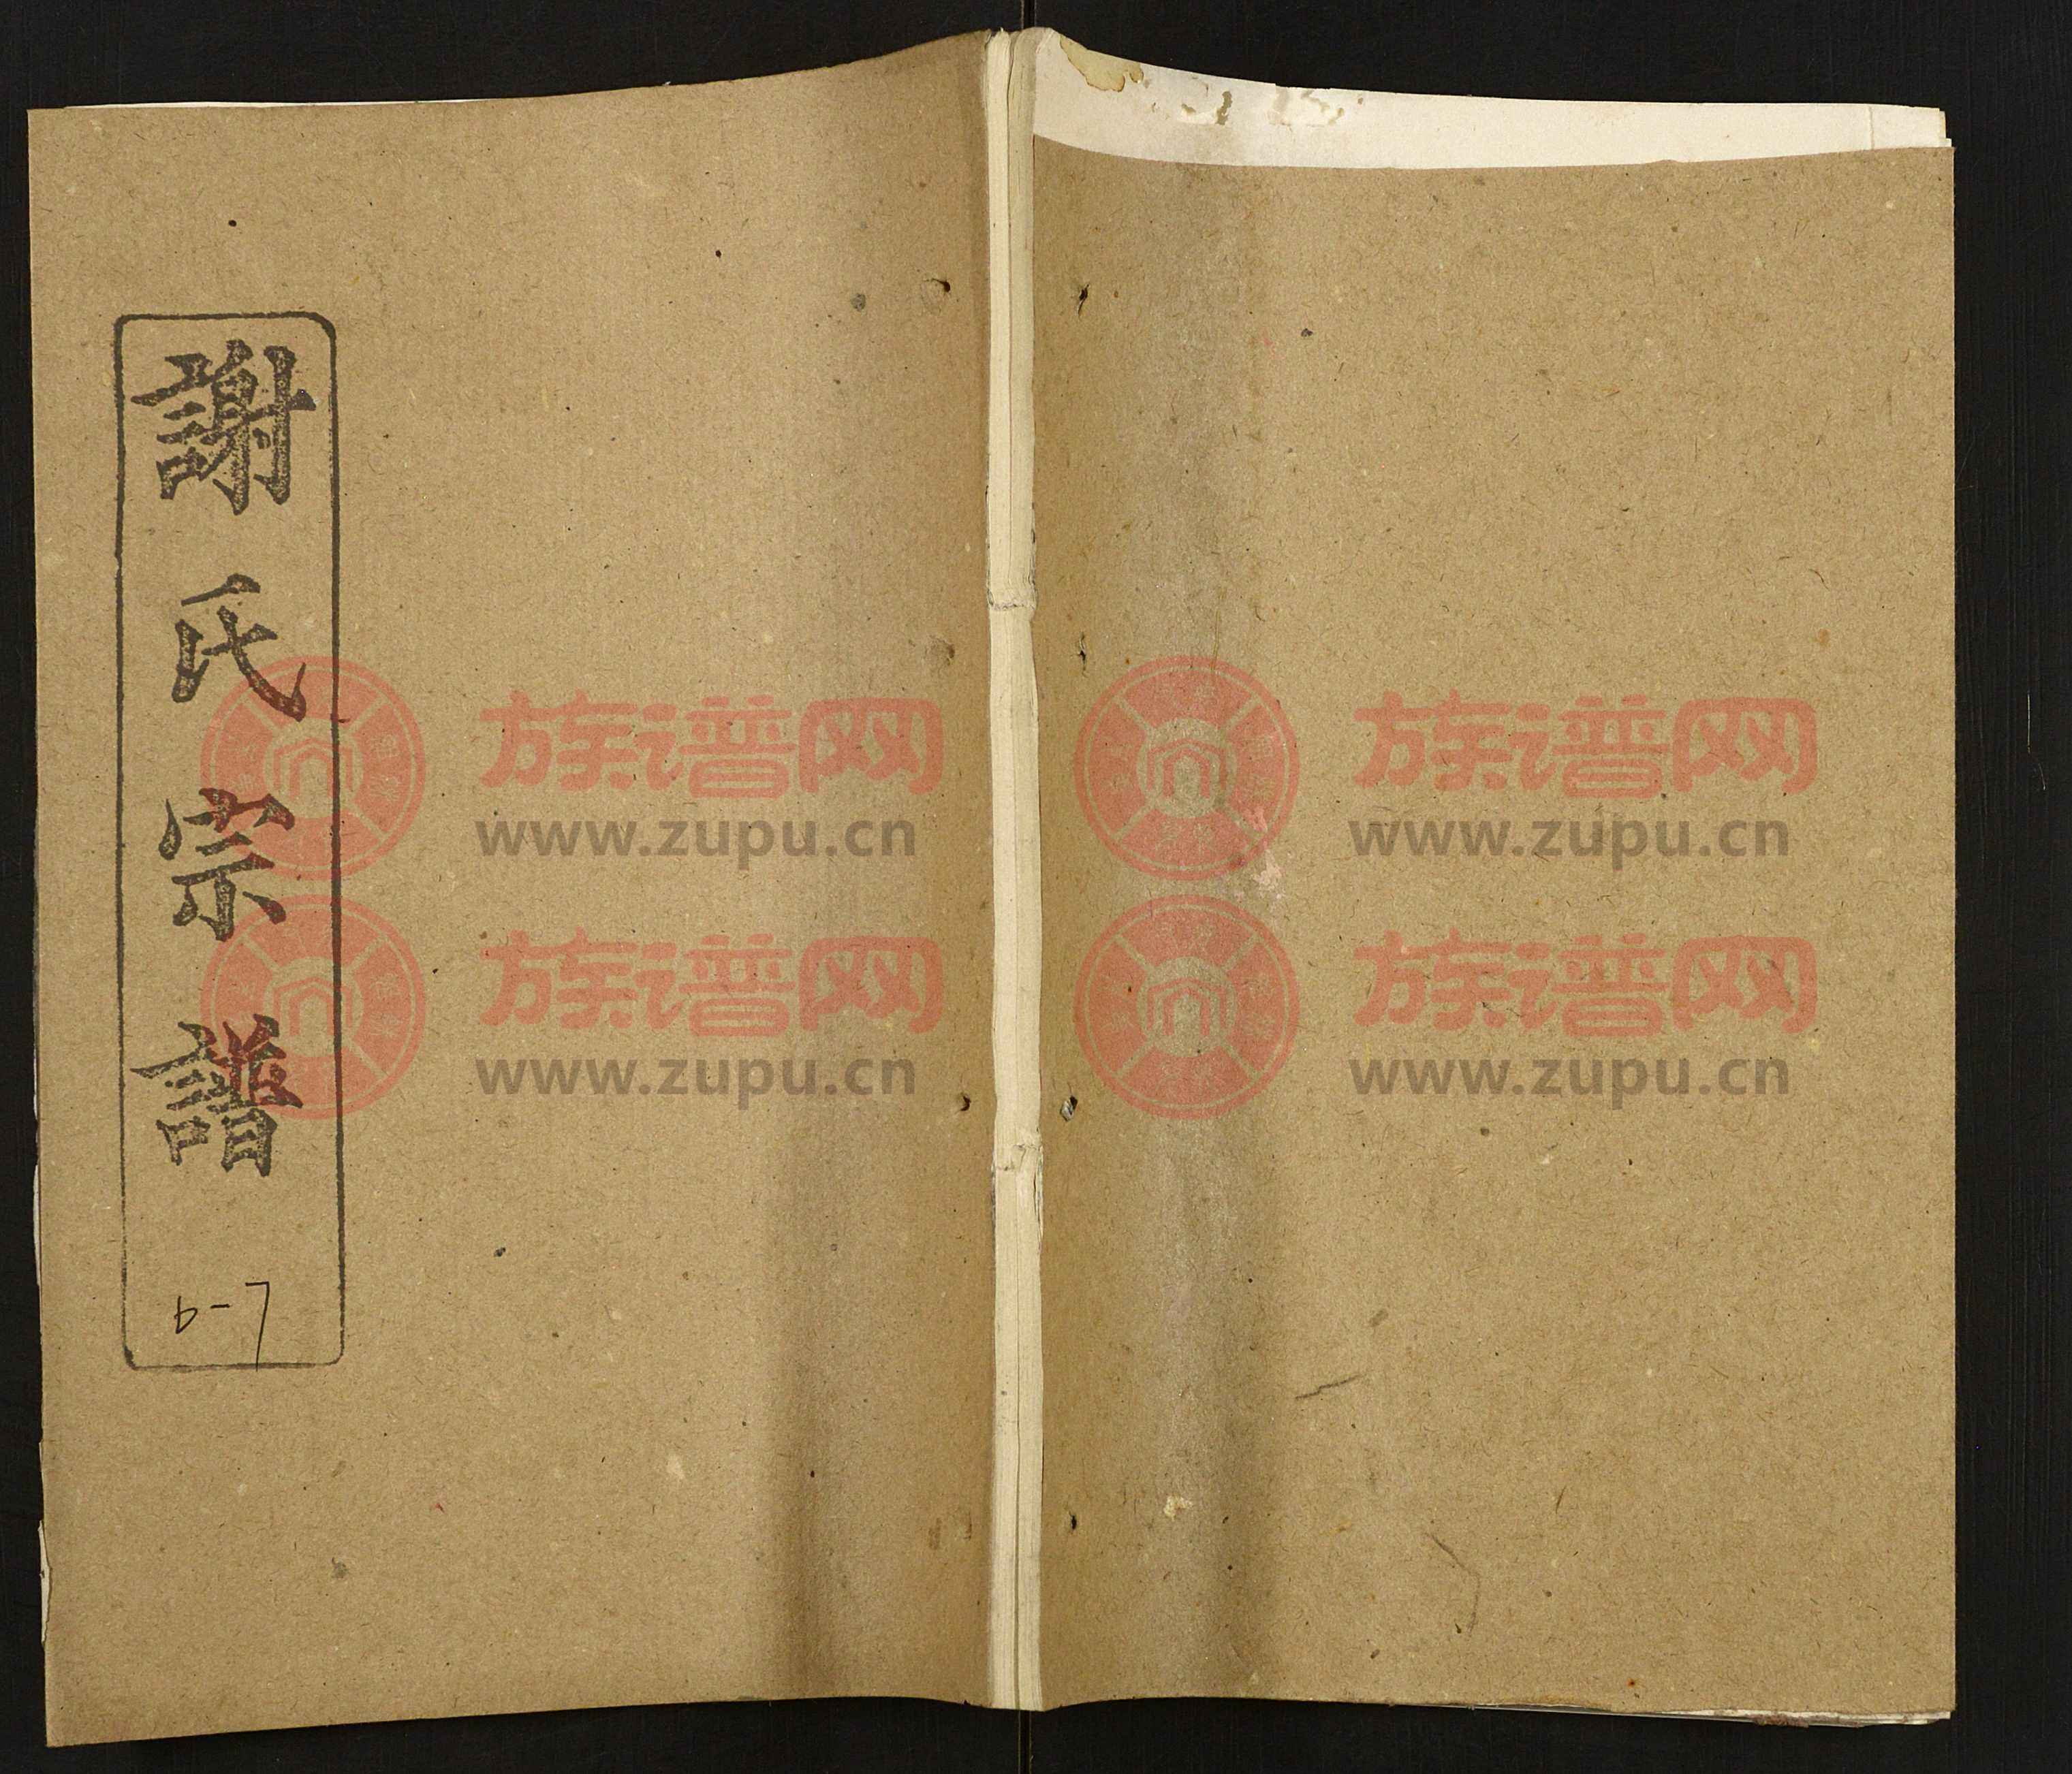 謝氏宗譜
6-7
族谱网
www.zupu.cn
族谱网
www.zupu.cn
族谱网
www.zupu.cn
族谱网
www.zupu.cn